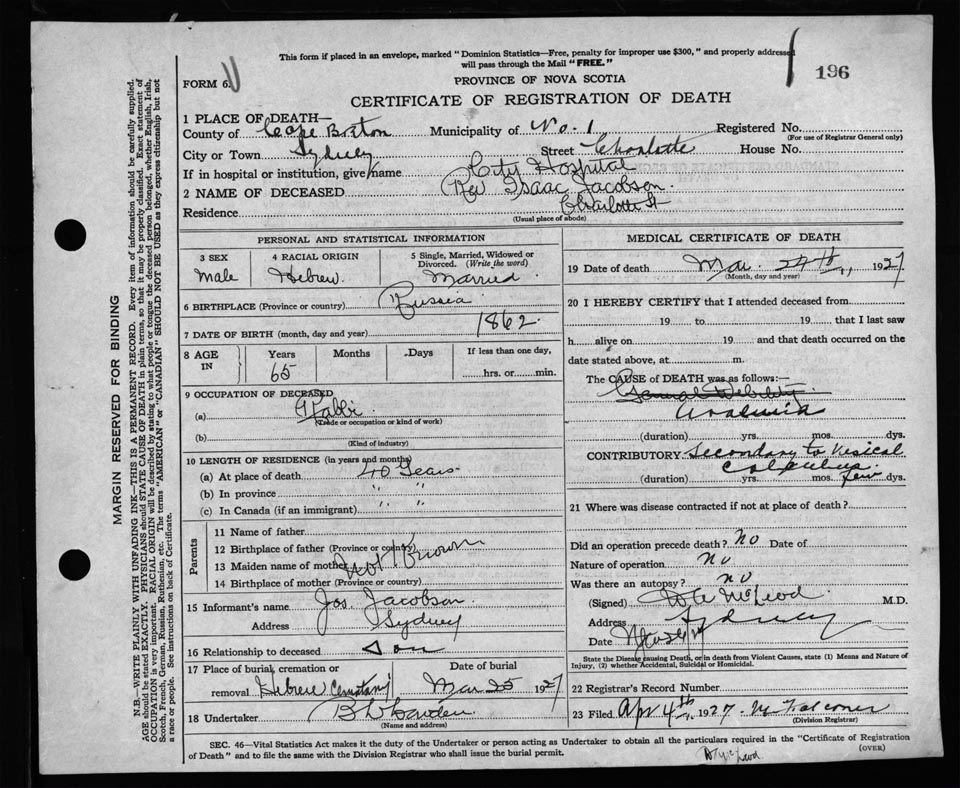 This form if placed in an envelope, marked "Dominion Statistics—Free, penalty for improper use $300," and properly addressed
will pass through the Mail "FREE."
FORM 6.
PROVINCE OF NOVA SCOTIA
196
CERTIFICATE OF REGISTRATION OF DEATH
1 PLACE OF DEATH—
County of Cape Breton Municipality of No. 1 Registered No.
(For use of Registrar General only)
City or Town Sydney Street Charlotte House No.
If in hospital or institution, give name City Hospital
2 NAME OF DECEASED Rev Isaac Jacobson.
Residence Charlotte St
(Usual place of abode)
PERSONAL AND STATISTICAL INFORMATION
3 SEX 4 RACIAL ORIGIN 5 Single, Married, Widowed or
Divorced. (Write the word)
Male Hebrew. Married
6 BIRTHPLACE (Province or country) Russia
7 DATE OF BIRTH (month, day and year) 1862.
8 AGE IN Years Months Days If less than one day,
65 hrs. or min.
9 OCCUPATION OF DECEASED
(a) Rabbi.
(Trade or occupation or kind of work)
(b)
(Kind of industry)
10 LENGTH OF RESIDENCE (in years and months)
(a) At place of death 40 Years
(b) In province " "
(c) In Canada (if an immigrant) " "
Parents
11 Name of father
12 Birthplace of father (Province or country)
13 Maiden name of mother Not Known
14 Birthplace of mother (Province or country)
15 Informant's name Jos. Jacobson
Address Sydney
16 Relationship to deceased Son
17 Place of burial, cremation or Date of burial
removal Hebrew Cemetary Mar 25 1927
18 Undertaker
(Name and address)
MEDICAL CERTIFICATE OF DEATH
19 Date of death Mar. 24th, 1927
(Month, day and year)
20 I HEREBY CERTIFY that I attended deceased from
19 to 19 that I last saw
h alive on 19 and that death occurred on the
date stated above, at m.
The CAUSE of DEATH was as follows:—
General Debility
(duration) yrs. mos. dys.
CONTRIBUTORY Secondary to Vesical
Calculus.
(duration) yrs. mos. few dys.
21 Where was disease contracted if not at place of death?
Did an operation precede death? No Date of
Nature of operation No
Was there an autopsy? no
(Signed) McLeod M.D.
Address Sydney
Date
State the Disease causing Death, or in death from Violent Causes, state (1) Means and Nature of
Injury, (2) whether Accidental, Suicidal or Homicidal.
22 Registrar's Record Number
23 Filed Apr 4th, 1927. M Falconer
(Division Registrar)
SEC. 46—Vital Statistics Act makes it the duty of the Undertaker or person acting as Undertaker to obtain all the particulars required in the "Certificate of Registration
of Death" and to file the same with the Division Registrar who shall issue the burial permit.
(OVER)
MARGIN RESERVED FOR BINDING
N.B.—WRITE PLAINLY WITH UNFADING INK—THIS IS A PERMANENT RECORD. Every item of information should be carefully supplied.
AGE should be stated EXACTLY. PHYSICIANS should STATE CAUSE OF DEATH in plain terms, so that it may be properly classified. Exact statement of
OCCUPATION is very important. RACIAL ORIGIN will be described by stating to what people or tongue the deceased person belonged, whether English, Irish,
Scotch, French, German, Russian, Ruthenian, etc. The terms "AMERICAN" or "CANADIAN" SHOULD NOT BE USED as they express citizenship but not
a race or people. See instructions on back of Certificate.